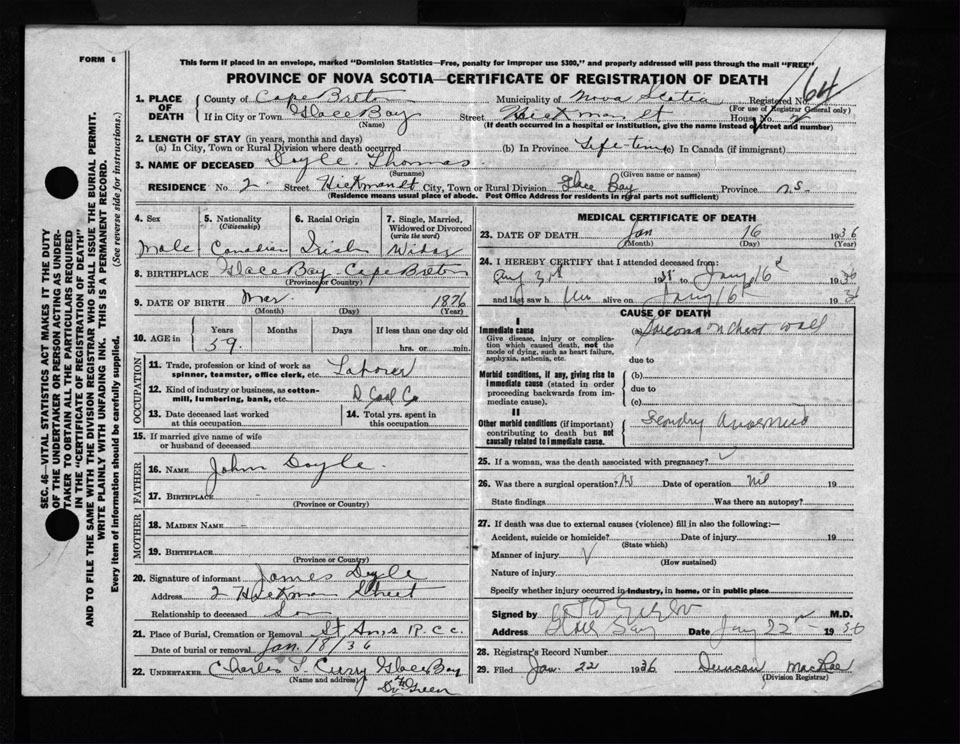 FORM 6
This form if placed in an envelope, marked "Dominion Statistics—Free, penalty for improper use $300," and properly addressed will pass through the mail "FREE"
PROVINCE OF NOVA SCOTIA—CERTIFICATE OF REGISTRATION OF DEATH
1. PLACE OF DEATH
County of Cape Breton Municipality of Nova Scotia Registered No. 64
(For use of Registrar General only)
If in City or Town Glace Bay Street Hickman St House No. 2
(Name) (If death occurred in a hospital or institution, give the name instead of street and number)
2. LENGTH OF STAY (in years, months and days)
(a) In City, Town or Rural Division where death occurred (b) In Province Life-time (c) In Canada (if immigrant)
3. NAME OF DECEASED Doyle Thomas
(Surname) (Given name or names)
RESIDENCE No. 2 Street Hickman St City, Town or Rural Division Glace Bay Province N.S.
(Residence means usual place of abode. Post Office Address for residents in rural parts not sufficient)
4. Sex
Male
5. Nationality
(Citizenship)
Canadian
6. Racial Origin
Irish
7. Single, Married, Widowed or Divorced
(write the word)
8. BIRTHPLACE Glace Bay Cape Breton
(Province or Country)
9. DATE OF BIRTH Mar. 1876
(Month) (Day) (Year)
10. AGE in
Years Months Days If less than one day old
59. hrs. or min.
OCCUPATION
11. Trade, profession or kind of work as spinner, teamster, office clerk, etc. Laborer
12. Kind of industry or business, as cotton-mill, lumbering, bank, etc. D Coal Co
13. Date deceased last worked at this occupation
14. Total yrs. spent in this occupation
15. If married give name of wife or husband of deceased
FATHER
16. NAME John Doyle.
17. BIRTHPLACE
(Province or Country)
MOTHER
18. MAIDEN NAME
19. BIRTHPLACE
(Province or Country)
20. Signature of informant James Doyle
Address 2 Hickman Street
Relationship to deceased Son
21. Place of Burial, Cremation or Removal St Anns R.C.C.
Date of burial or removal Jan. 18/36
22. UNDERTAKER Charles L. Curry Glace Bay
(Name and address)
Green
MEDICAL CERTIFICATE OF DEATH
23. DATE OF DEATH Jan 16 1936
(Month) (Day) (Year)
24. I HEREBY CERTIFY that I attended deceased from:
Aug 3rd 1935 to Jany 16 1936
and last saw him alive on Jany 16 1936
CAUSE OF DEATH
I
Immediate cause
Give disease, injury or complication which caused death, not the mode of dying, such as heart failure, asphyxia, asthenia, etc.
(a) Sarcoma on chest wall
due to
Morbid conditions, if any, giving rise to immediate cause (stated in order proceeding backwards from immediate cause).
(b)
due to
(c)
II
Other morbid conditions (if important) contributing to death but not causally related to immediate cause.
25. If a woman, was the death associated with pregnancy?
26. Was there a surgical operation? No Date of operation nil 19
State findings Was there an autopsy?
27. If death was due to external causes (violence) fill in also the following:—
Accident, suicide or homicide? Date of injury 19
(State which)
Manner of injury
(How sustained)
Nature of injury
Specify whether injury occurred in industry, in home, or in public place
Signed by M.D.
Address Glace Bay Date Jany 22 1936
28. Registrar's Record Number
29. Filed Jan. 22 1936 Duncan MacRae
(Division Registrar)
SEC. 46—VITAL STATISTICS ACT MAKES IT THE DUTY
OF THE UNDERTAKER OR PERSON ACTING AS UNDER-
TAKER TO OBTAIN ALL THE PARTICULARS REQUIRED
IN THE "CERTIFICATE OF REGISTRATION OF DEATH"
AND TO FILE THE SAME WITH THE DIVISION REGISTRAR WHO SHALL ISSUE THE BURIAL PERMIT.
WRITE PLAINLY WITH UNFADING INK. THIS IS A PERMANENT RECORD.
Every item of information should be carefully supplied. (See reverse side for instructions.)